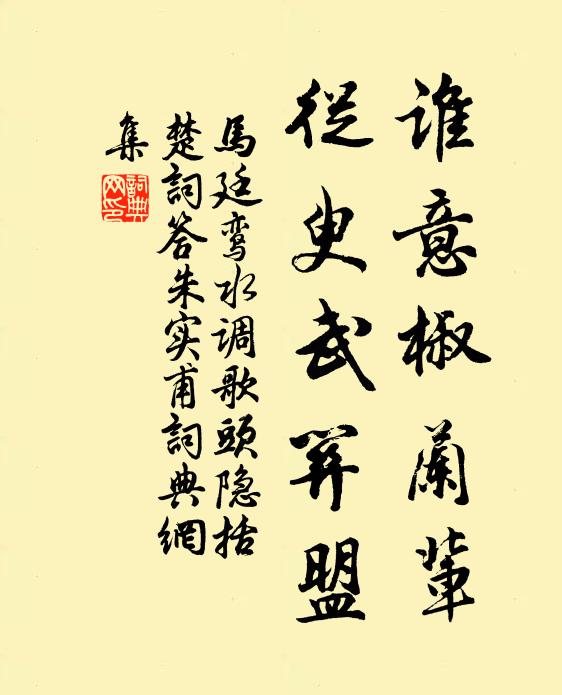 誰意椒蘭輩
從臾武羿盟
馬廷鸾水调歌頭隐括
楚詞答朱实甫詞典網
集
詞典
网印